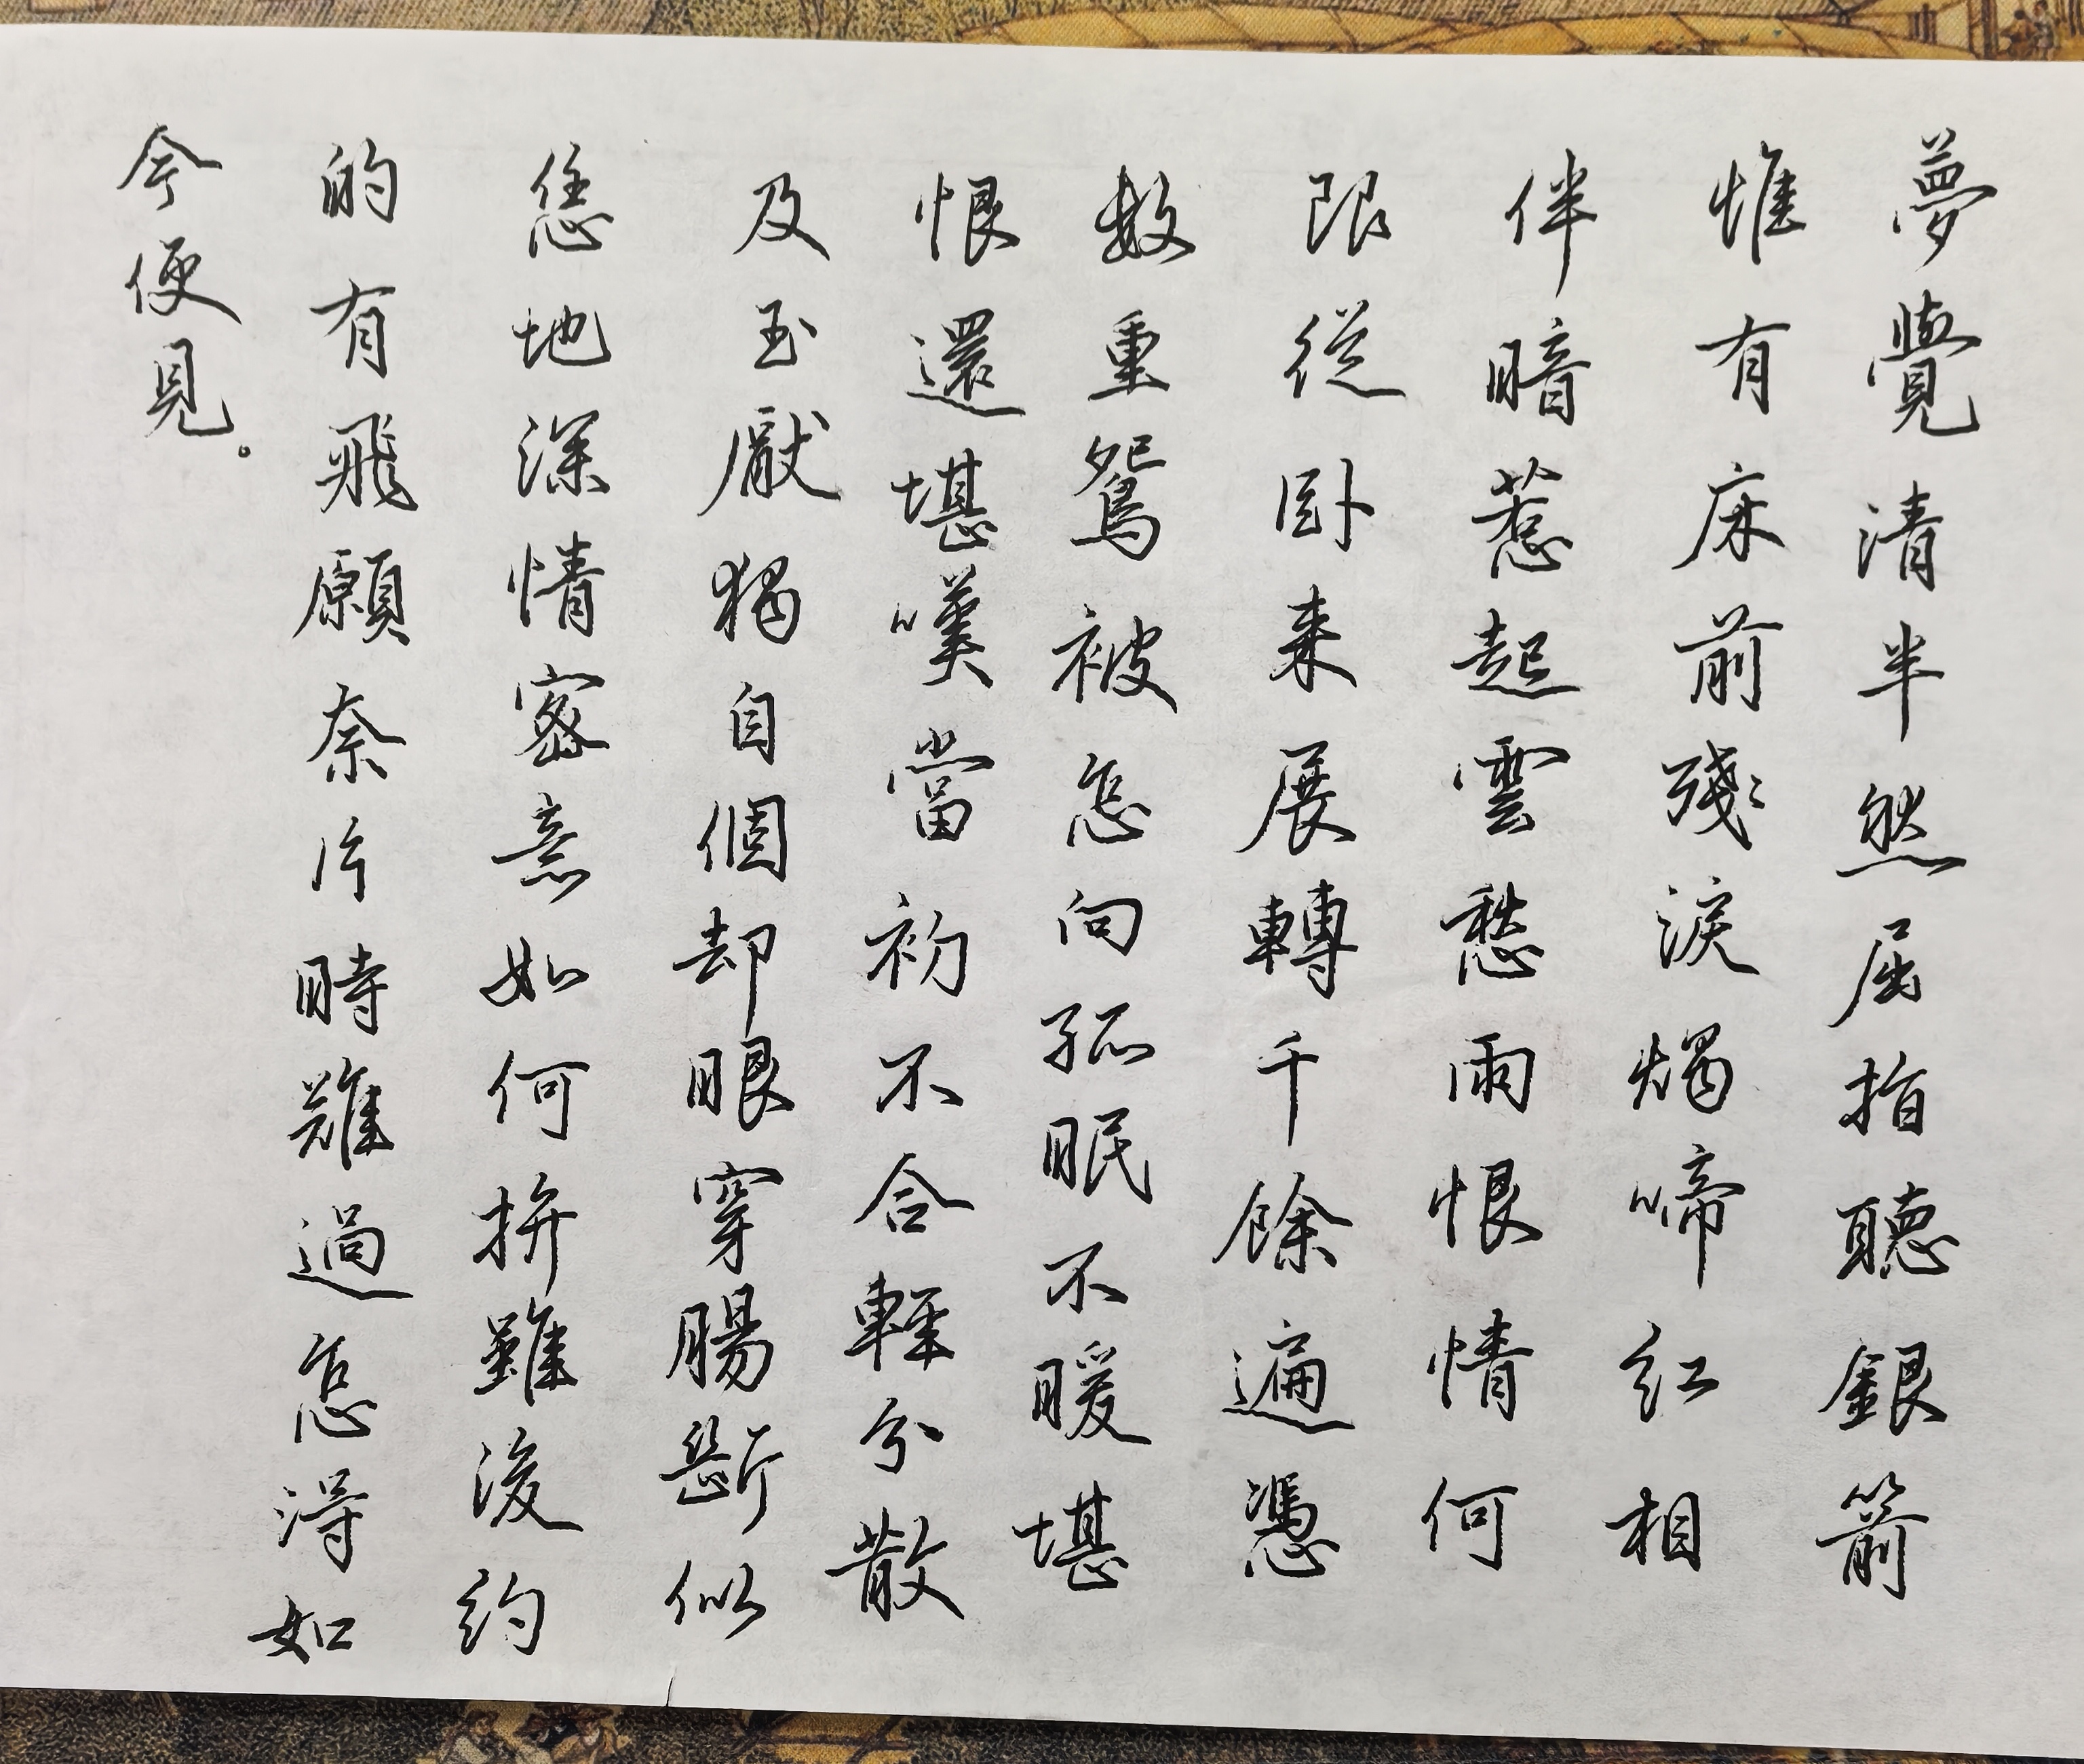 夢覺清半然屈指聽銀箭
惟有床前殘淚燭啼紅相
伴暗惹起雲愁雨恨情何
限從卧来展轉千餘遍憑
數重鴛被怎向孤眠不暖堪
恨還堪嘆當初不合輕分散
及至厭獨自個却眼穿腸斷似
恁地深情密意如何拚雖後約
的有飛願奈片時難過怎得如
今便見。